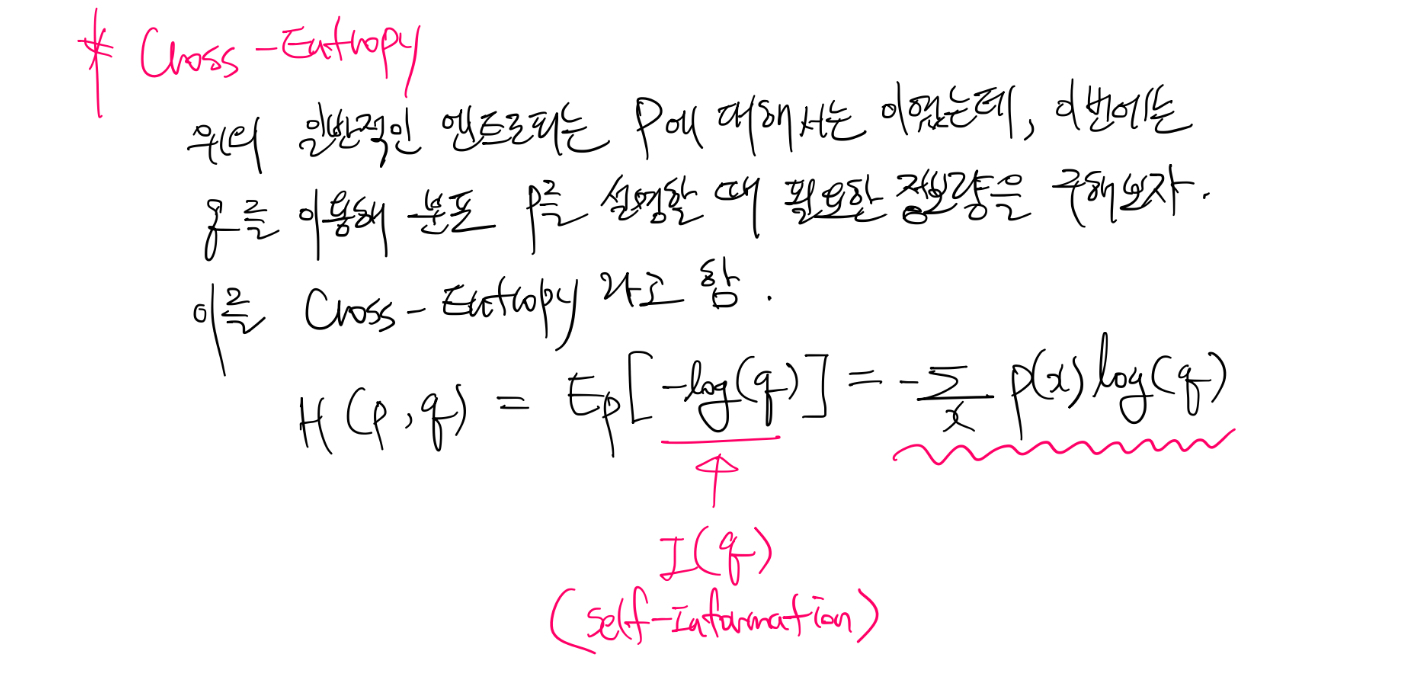 * Cross-Entropy
위의 일반적인 엔트로피는 P에 대해서는 이였는데, 이번에는
q를 이용해 분포 P를 설명할 때 필요한 정보량을 구해보자.
이를 Cross-Entropy 라고 함.
H(p,q) = Ep[-log(q)] = -∑x p(x)log(q)
↑
I(q)
(self-Information)